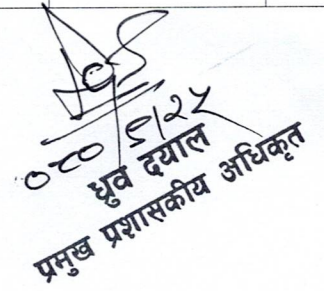 ध्रुव दयाल
प्रमुख प्रशासकीय अधिकृत